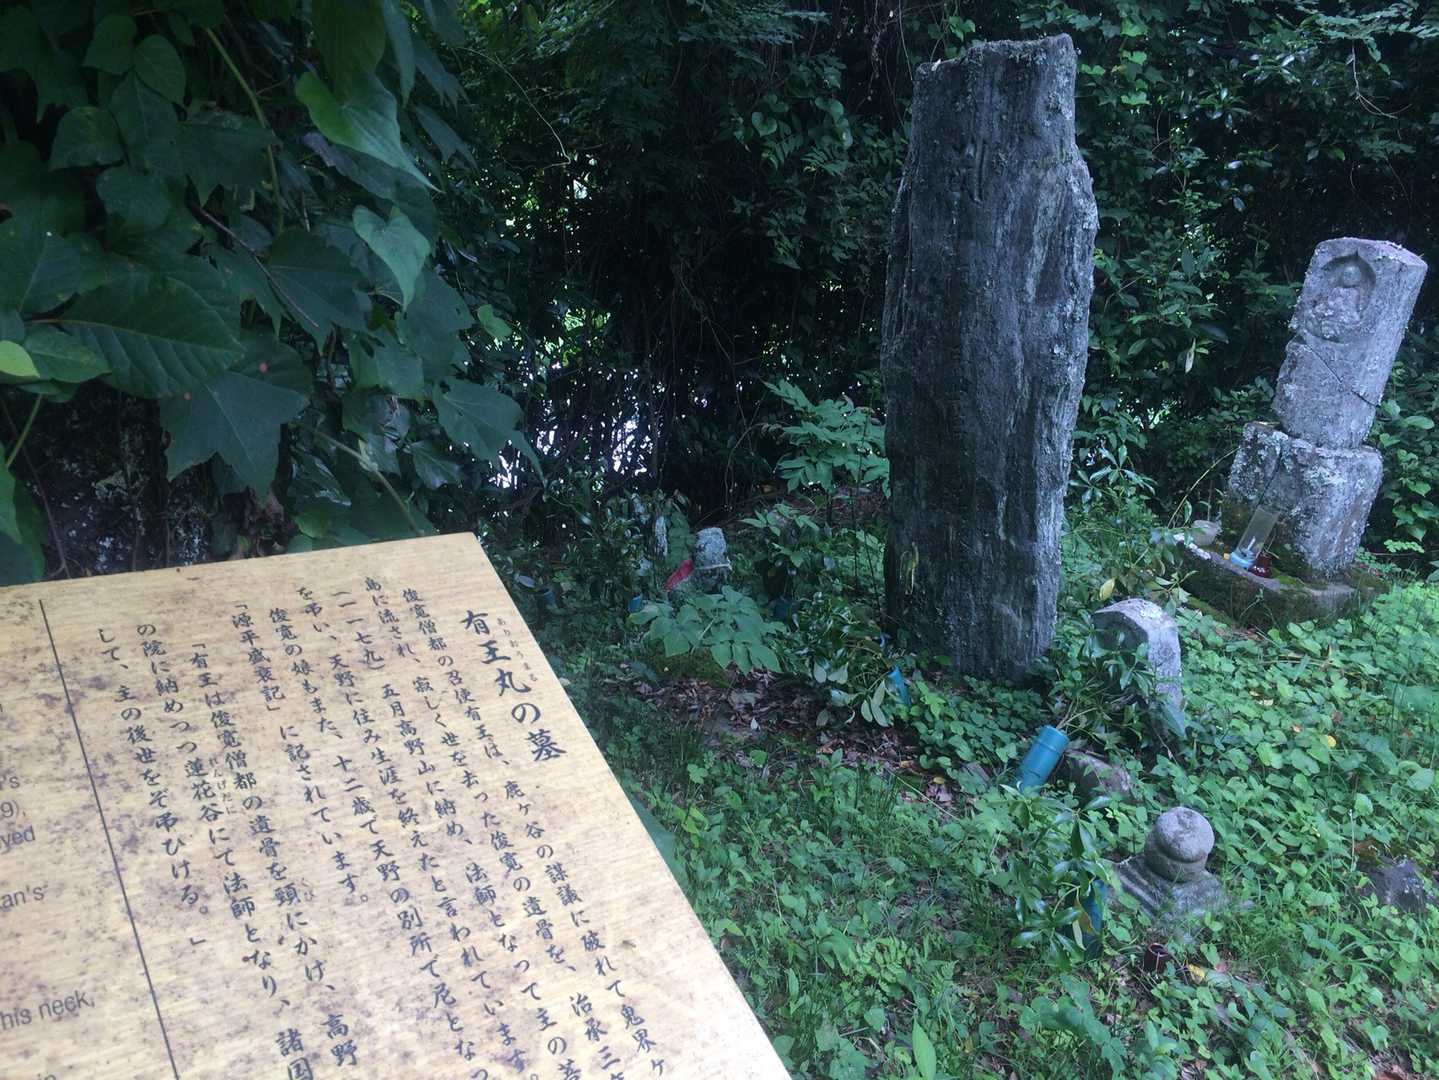 有王丸の墓
ありおうまる
俊寛僧都の召使有王は、鹿ヶ谷の謀議に破れて鬼界ヶ
島に流され、寂しく世を去った俊寛の遺骨を、治承三年
（一一七九）五月高野山に納め、法師となって主の菩
を弔い、天野に住み生涯を終えたと言われています。
俊寛の娘もまた、十二歳で天野の別所で尼となっ
「源平盛衰記」に記されています。
「有王は俊寛僧都の遺骨を頸にかけ、高野
くび
の院に納めつつ蓮花谷にて法師となり、諸国
れんげだに
して、主の後世をぞ弔ひける。」
's
9),
yed
an's
his neck,